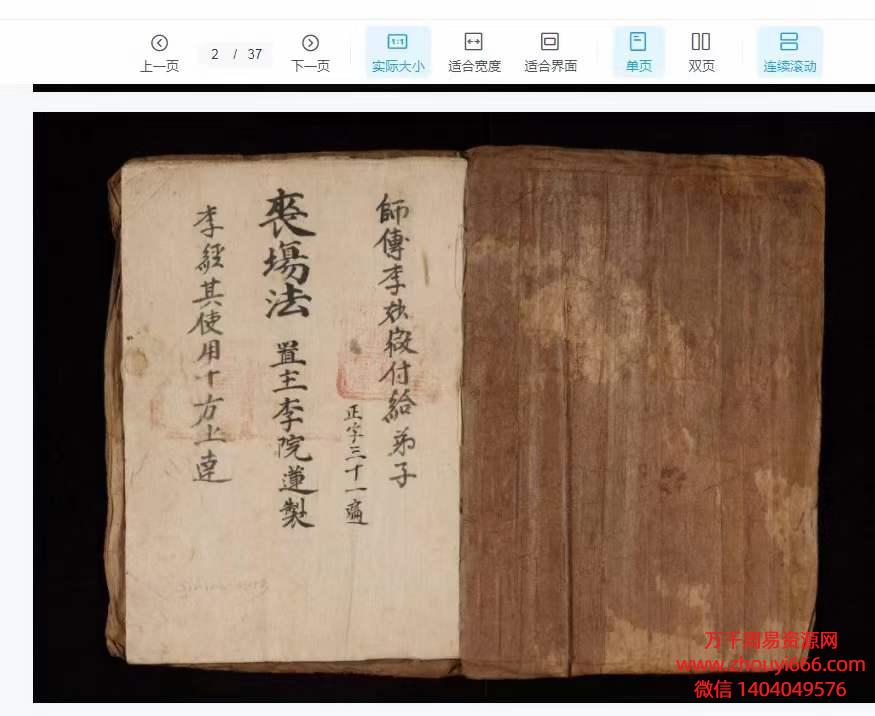 上一页
2 / 37
下一页
1:1
实际大小
适合宽度
适合界面
单页
双页
连续滚动
師傳李 付給弟子
正字三十一遍
喪塲法 置主李院蓮製
李經其使用十方上達
万千周易资源网
www.zhouyi666.com
微信 1404049576